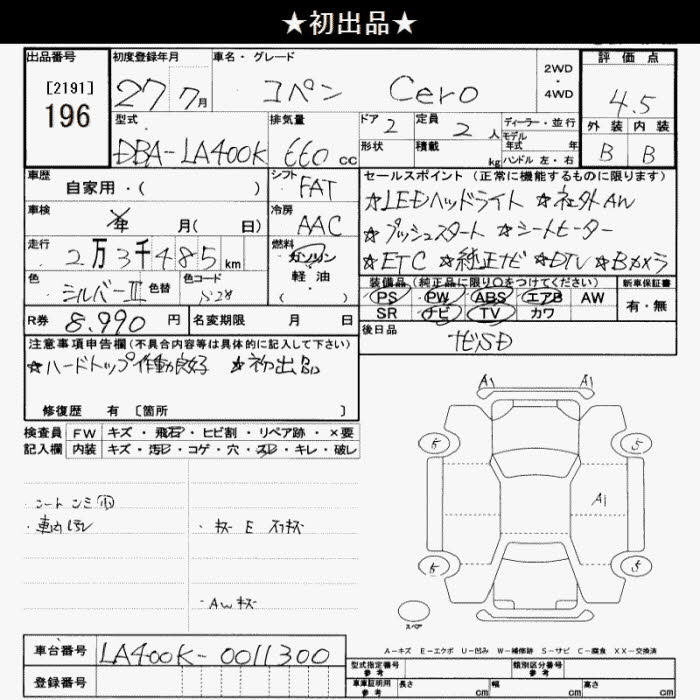 ★初出品★
出品番号 初度登録年月 車名・グレード 2WD・4WD 評価点
[2191] 196 27年 7月 コペン Cero 4.5
型式 排気量 ドア 2 定員 2人 ディーラー・並行 外装 内装
DBA-LA400K 660cc 形状 積載 kg モデル年式 年 ハンドル 左・右 B B
車歴 自家用・( ) シフト FAT セールスポイント(正常に機能するものに限ります)
車検 年 月( 日) 冷房 AAC ☆LEDヘッドライト ☆社外AW
☆プッシュスタート ☆シートヒーター
走行 2万3千485km 燃料 ガソリン 軽・油 ( ) ☆ETC ☆純正ナビ ☆DTV ☆Bカメラ
色 シルバーIII 色替 色コード S28 装備品(純正品に限り○をつけてください) 新車保証書
PS PW ABS エアB AW 有・無
SR ナビ TV カワ
R券 8,990円 名変期限 月 日 後日品 ナビSD
注意事項申告欄(不具合内容等は具体的に記入して下さい)
☆ハードトップ作動良好 ☆初出品
修復歴 有 [箇所 ]
検査員 FW キズ・飛石・ヒビ割・リペア跡・×要
記入欄 内装 キズ・汚レ・コゲ・穴・スレ・キレ・破レ
A1 A1
A1
・シートシミ小
・車内ヨゴレ ・キズ E スリキズ
・AWキズ
スペア
A-キズ E-エクボ U-凹み W-補修跡 S-サビ C-腐食 XX-交換済
車台番号 LA400K-0011300
登録番号
型式指定番号 参考 類別区分番号 参考
車庫証明用 参考 長さ cm 幅 cm 高さ cm